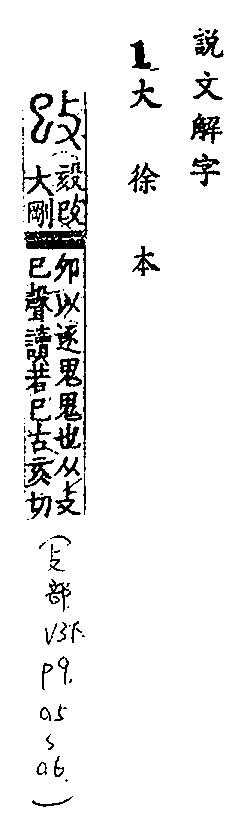 説文解字
1大徐本
攺
毅攺
大剛
夘以逐鬼鬽也从攴
巳聲讀若巳古亥切
(攴部
V3下.
p9.
a5
s
a6.)